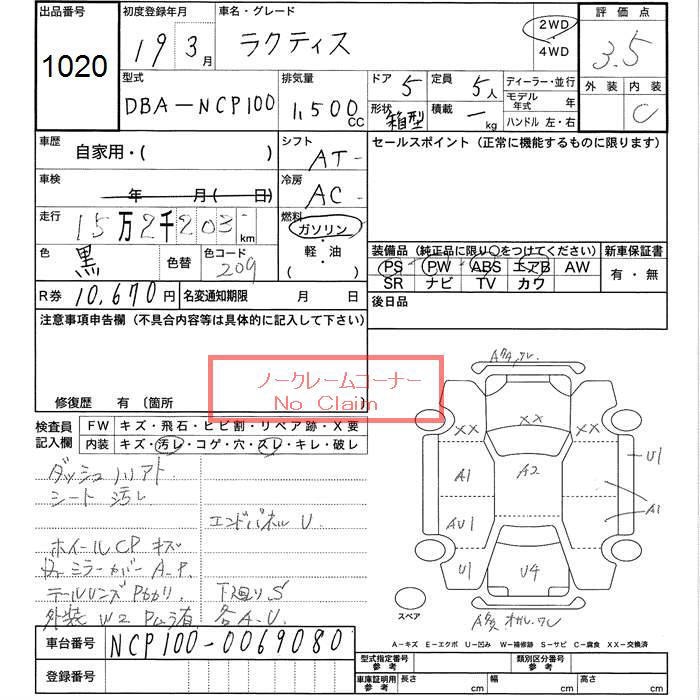 出品番号 初度登録年月 車名・グレード 評価点
1020 19 3月 ラクティス 2WD 3.5
4WD
外装 内装
型式 排気量 ドア 5 定員 5人 ディーラー・並行 C
DBA-NCP100 1,500CC 形状 箱型 積載 - kg モデル年式 年
ハンドル 左・右
車歴 自家用・( ) シフト AT- セールスポイント(正常に機能するものに限ります)
車検 年 月( 日) 冷房 AC-
走行 15万2千203 km 燃料 ガソリン・軽・油( )
色 黒 色替 色コード 209
装備品(純正品に限り○をつけてください) 新車保証書
PS PW ABS エアB AW 有・無
SR ナビ TV カワ
R券 10,670円 名変通知期限 月 日 後日品
注意事項申告欄(不具合内容等は具体的に記入して下さい)
ノークレームコーナー
No Claim
修復歴 有〔箇所
検査員記入欄 FW キズ・飛石・ヒビ割・リペア跡・X要
内装 キズ・汚レ・コゲ・穴・スレ・キレ・破レ
シート 汚レ
エンドパネル U
ホイールCP キズ
ミラーカバー A.P.
下廻りS
外装 W2 Pムラ有 各A-U
XX XX XX XX
A1 A2 U1
AU1 A1
U1 U4
スペア
車台番号 NCP100-0069080
A-キズ E-エクボ U-凹み W-補修跡 S-サビ C-腐食 XX-交換済
登録番号
型式指定番号参考 類別区分番号参考
車庫証明参考 長さ cm 幅 cm 高さ cm